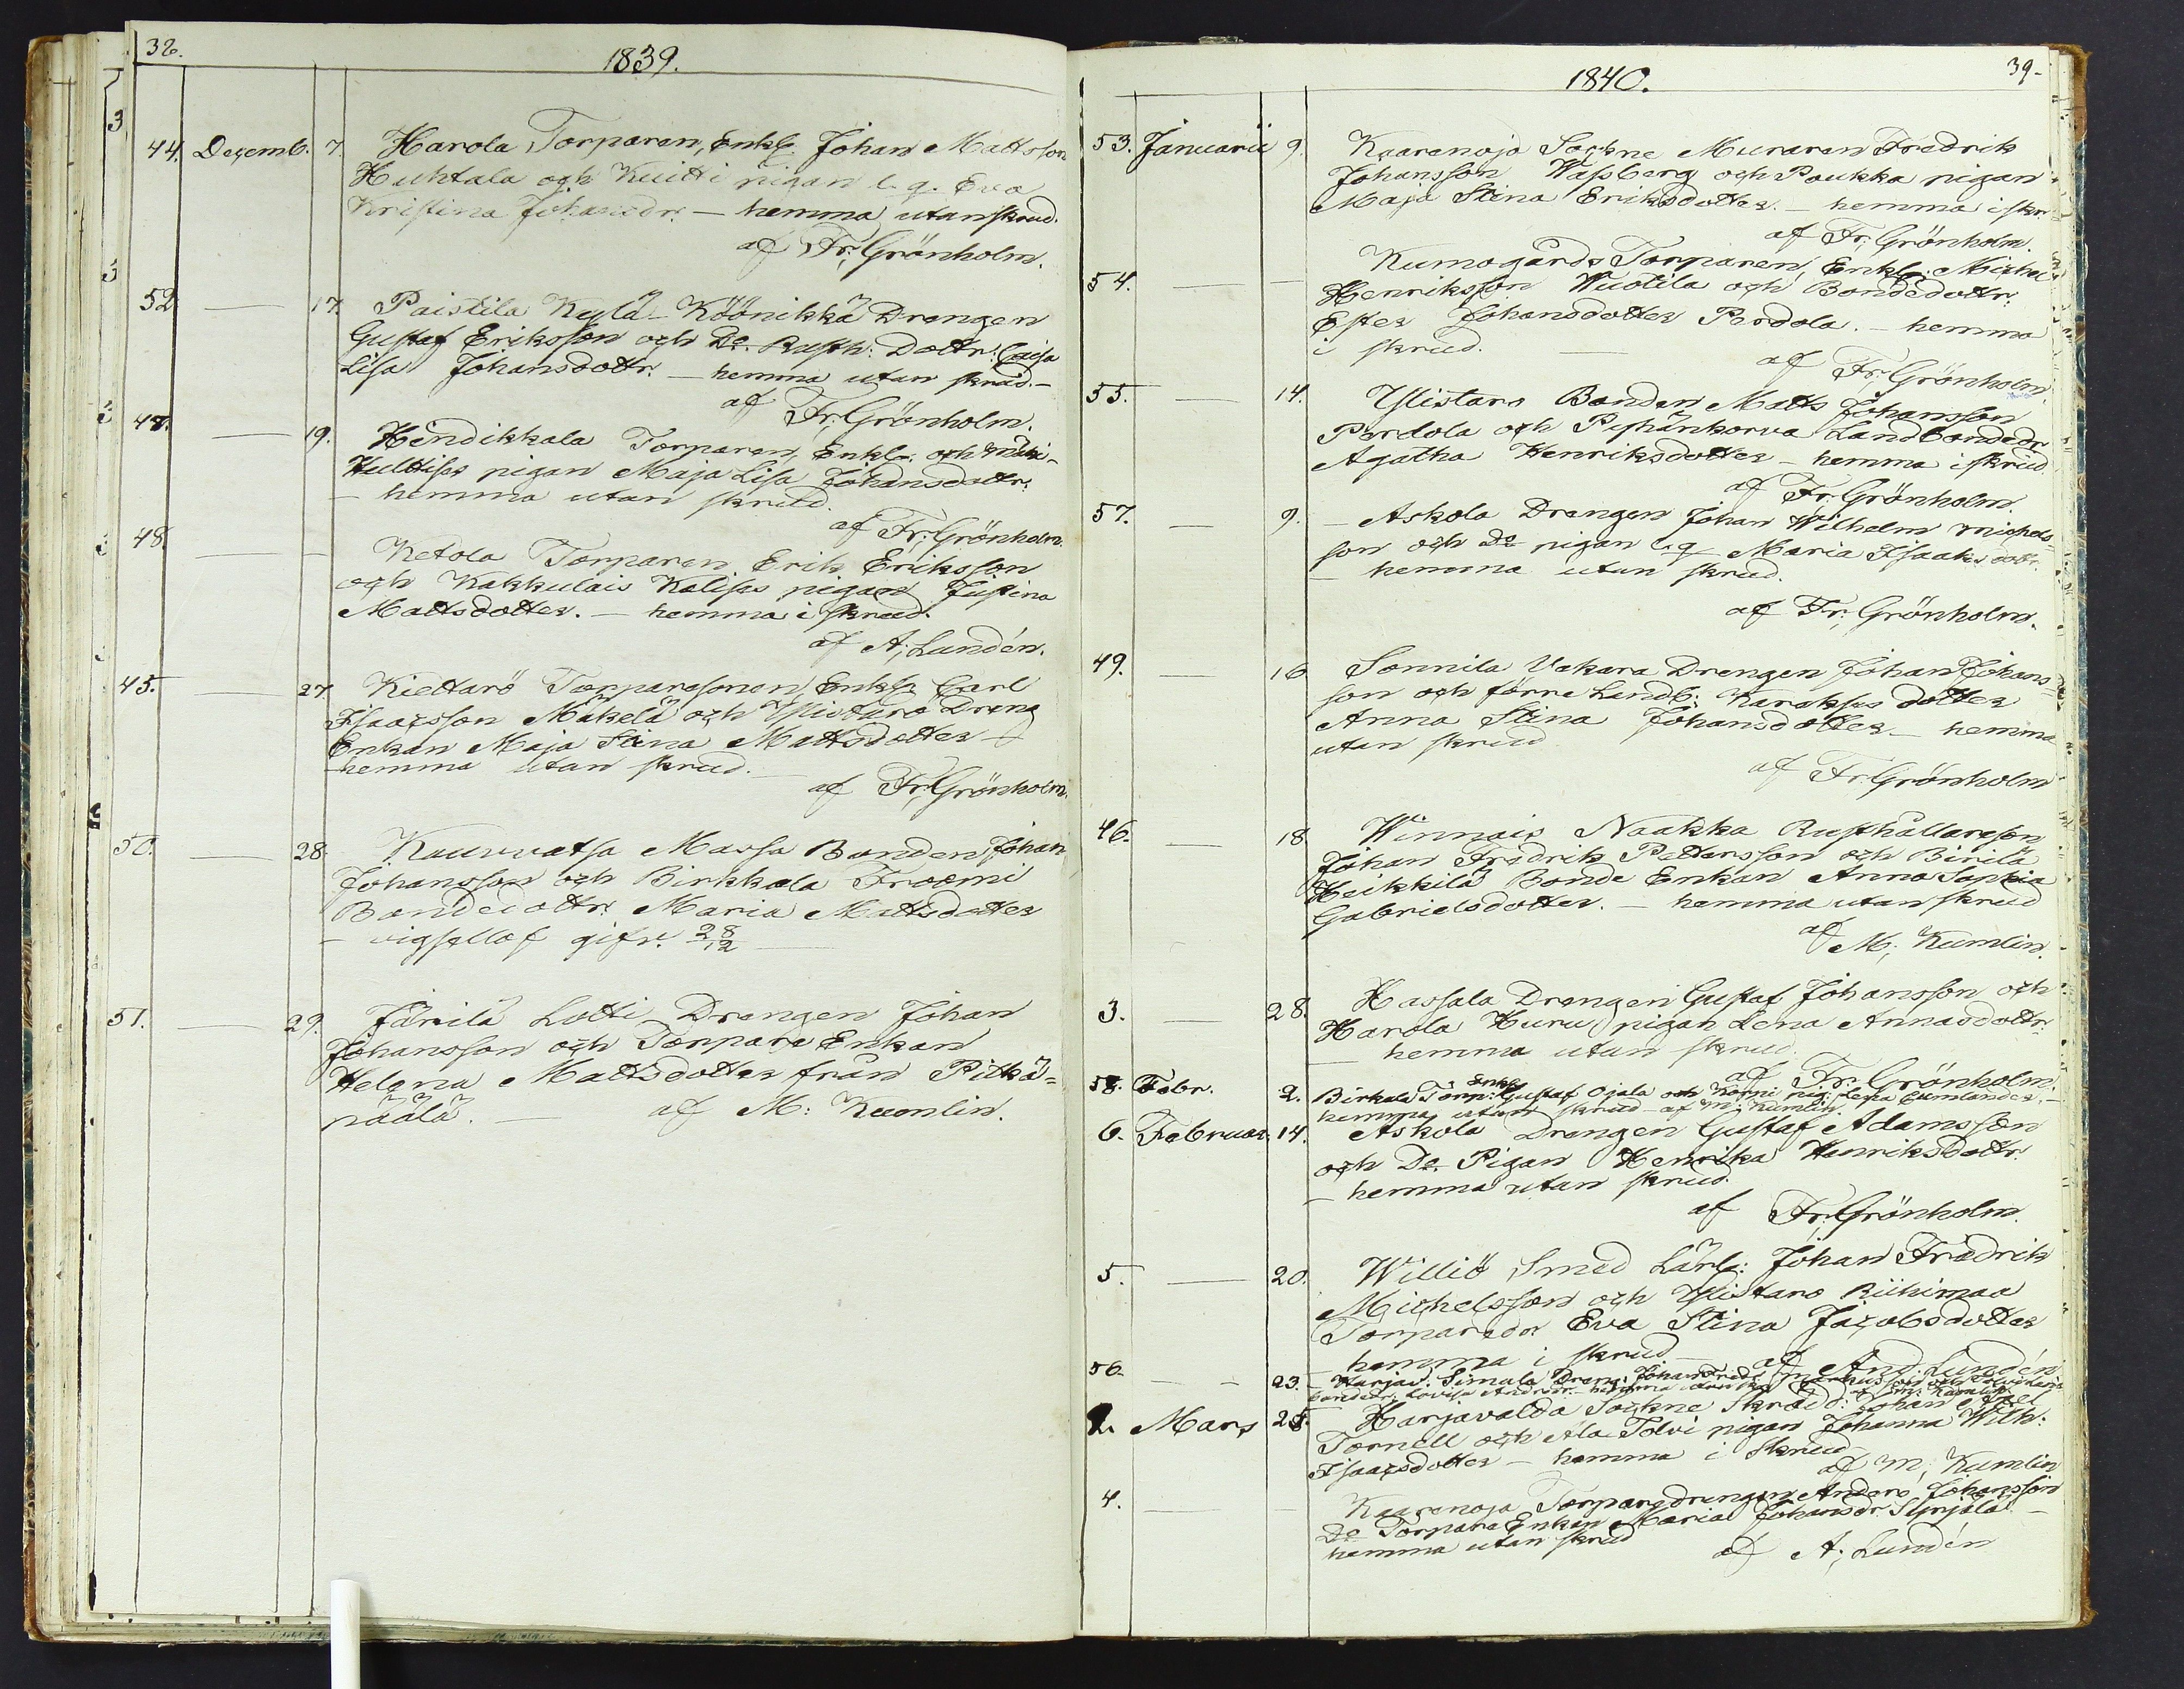 38.
1839.
44. Decemb. 7. Harola Torparen, Enkl. Johan Mattsson
Huhtala och Kuitti pigan l. q. Eva
Kristina Johansdr. — hemma utan skrud.
af Fr: Grönholm.
52. — 17. Paistila Kylä-Köönikkä Drengen
Gustaf Eriksson och Do. Rusth: Dottr. Caisa
Lisa Johansdottr. — hemma utan skrud. —
af Fr: Grönholm.
47. — 19. Hendikkala Torparen, Enkl. och
Hultiss pigan Maja Lisa Johansdottr.
— hemma utan skrud.
af Fr: Grönholm.
48. — — Ketola Torparen Erik Eriksson
och Kakkulais Kaliss pigan Justina
Mattsdotter. — hemma i skrud.
af A; Lundén.
45. — 27. Kiettarö Torparesonen, Enkl. Carl
Isaacsson Mäkelä och Ylistaro Dreng
Enkan Maja Stina Mattsdotter —
hemma utan skrud. —
af Fr; Grönholm.
50. — 28. Kauvvatsa Massa Bonden Johan
Johansson och Birkkala Froomi
Bondedottr. Maria Mattsdotter
— vigsellof gifv. 28/12 —
51. — 29. Järilä Lotti Drengen Johan
Johansson och Torpare Enkan
Helena Mattsdotter från Pitkä-
päälä. — af M: Kumlin.
39.
1840.
53. Januarii 9. Kaarenoja Sockne Muraren Fredrik
Johansson Wassberg och Paukka pigan
Maja Stina Eriksdotter. — hemma i skr.
af Fr; Grönholm.
54. — — Kumogårds Torparen, Enkl. Michel
Henriksson Wuotila och Bondedottr.
Ester Johansdotter Perdola. — hemma
i skrud. — af Fr; Grönholm.
55. — 14. Ylistaro Bonden Matts Johansson
Perdola och Pispänkorva Landbondedr
Agatha Henriksdotter — hemma i skrud
af Fr. Grönholm.
57. — 9. — Askola Drengen Johan Wilhelm Michels-
son och Do pigan l. q. Maria Isaaksdottr.
— hemma utan skrud.
af Fr; Grönholm.
49. — 16. Sonnila Vakara Drengen Johan Johans-
son och förre Landb: Karakses dotter
Anna Stina Johansdotter — hemma
utan skrud
af Fr: Grönholm
46. — 18. Winnais Naakka Rusthållareson
Johan Fredrik Pettersson och Birilä
Heikkilä Bonde Enkan Anna Sophia
Gabrielsdotter. — hemma utan skrud
af M; Kumlin.
3. — 28. Hassala Drengen Gustaf Johansson och
Harola Kuru pigan Lena Annasdottr.
— hemma utan skrud.
af Fr: Grönholm.
58. Febr. 2. Birkala Torp: Enkl Gustaf Ojala och Korpi pig: Lena Cumlander. —
hemma utan skrud — af M; Kumlin.
6. Februar. 14. Askola Drengen Gustaf Adamsson
och Do. Pigan Henrika Henriksdottr.
— hemma utan skrud.
af Fr: Grönholm.
5. — 20. Williö Smed Lärl: Johan Fredrik
Michelsson och Ylistaro Riihimaa
Torparedr Eva Stina Jacobsdotter
hemma i skrud — af And. Lundén
56. — 23. — Harjav. Simula Dreng: Johan Fred: Markusson och
bondedr. Lovisa Andersdr. — hemma utan skr. af M: Kumlin
2. Mars 25. Harjavalda Sockne Skrädd: Johan Axel
Tornell och Ala Tolvi pigan Johanna Wilh:
Isaacsdotter — hemma i skrud
af M; Kumlin
4. — — Kaarenoja Torparedrengen Anders Johansson
Do Torpare Enkan Maria Johansdr Syrjälä. —
hemma utan skrud
af A; Lundén